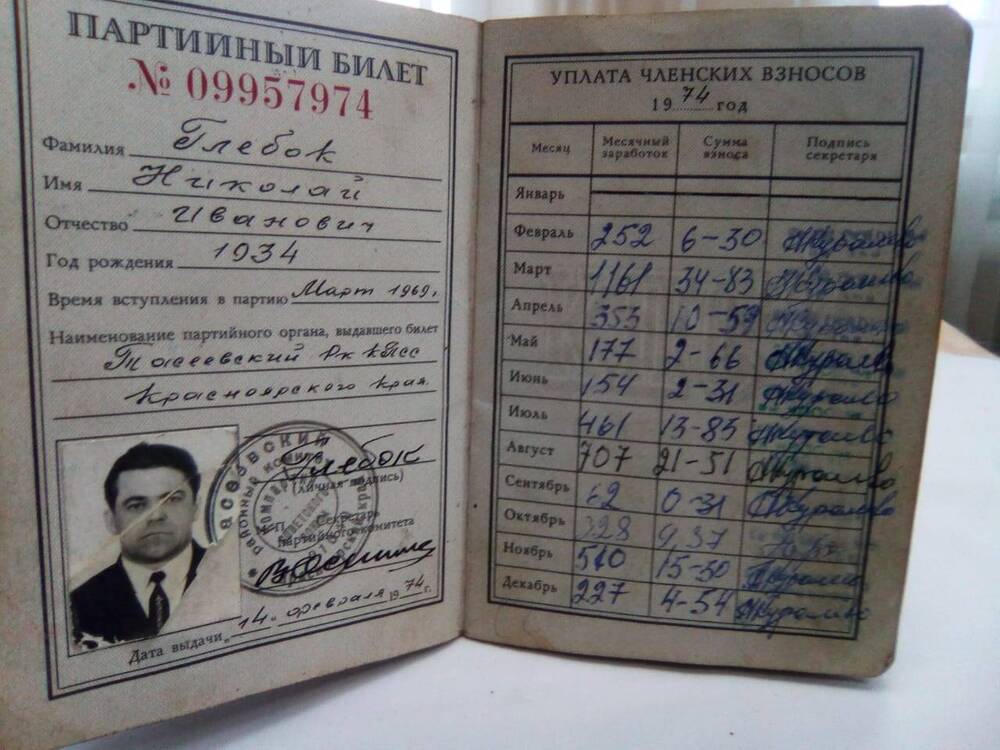 ПАРТИЙНЫЙ БИЛЕТ
№ 09957974
Фамилия Глебок
Имя Николай
Отчество Иванович
Год рождения 1934
Время вступления в партию Март 1969г.
Наименование партийного органа, выдавшего билет
Тасеевский РК КПСС
Красноярского края.
Глебок
(личная подпись)
М. П. Секретарь
партийного комитета
Дата выдачи „14" февраля 1974 г.
УПЛАТА ЧЛЕНСКИХ ВЗНОСОВ
1974 год
Месяц Месячный заработок Сумма взноса Подпись секретаря
Январь
Февраль 252 6-30
Март 1161 34-83
Апрель 353 10-59
Май 177 2-66
Июнь 154 2-31
Июль 461 13-83
Август 707 21-51
Сентябрь 62 0-31
Октябрь 328 9-37
Ноябрь 510 15-30
Декабрь 227 4-54